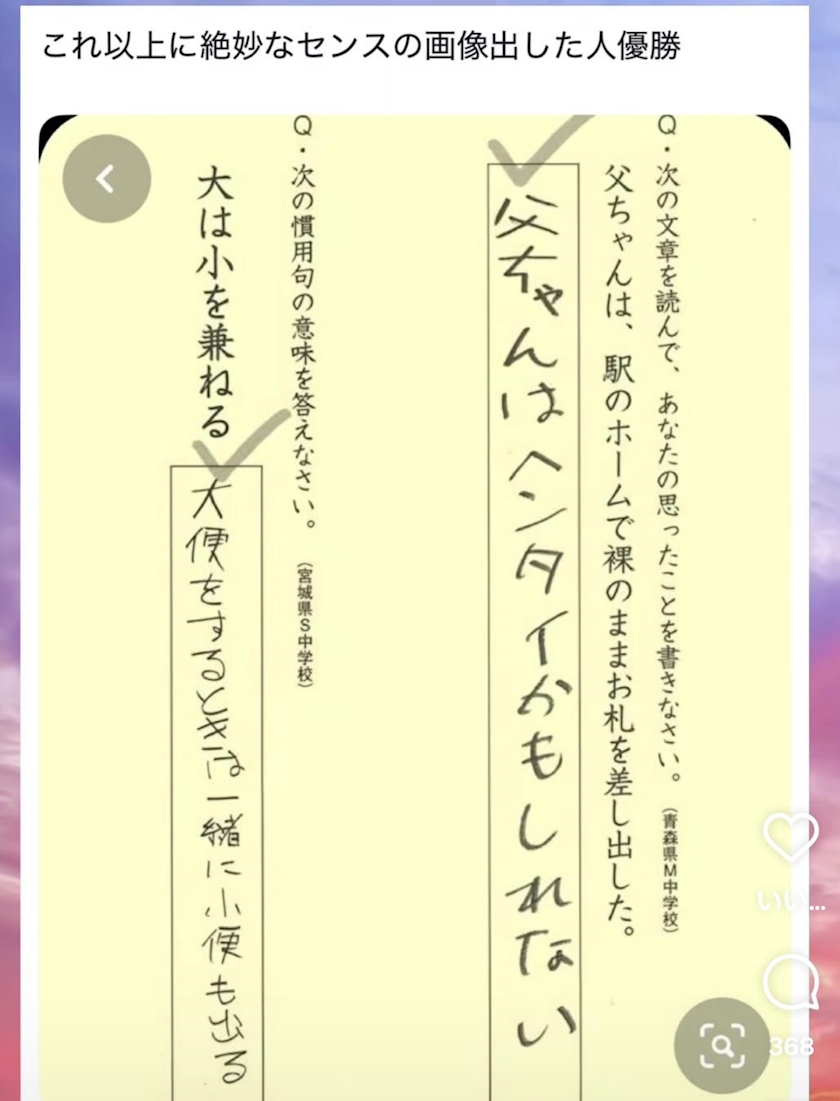 これ以上に絶妙なセンスの画像出した人優勝
Q・次の文章を読んで、あなたの思ったことを書きなさい。(青森県M中学校)
父ちゃんは、駅のホームで裸のままお札を差し出した。
父ちゃんはヘンタイかもしれない
Q・次の慣用句の意味を答えなさい。(宮城県S中学校)
大は小を兼ねる
大便をするときは一緒に小便も出る
いい...
368